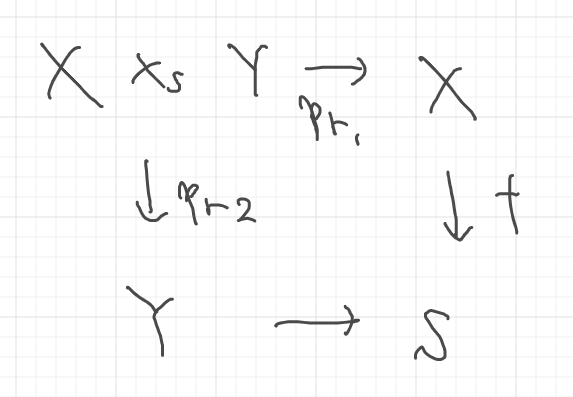 X ×ₛ Y → X
pr₁
↓ pr₂ ↓ f
Y → S